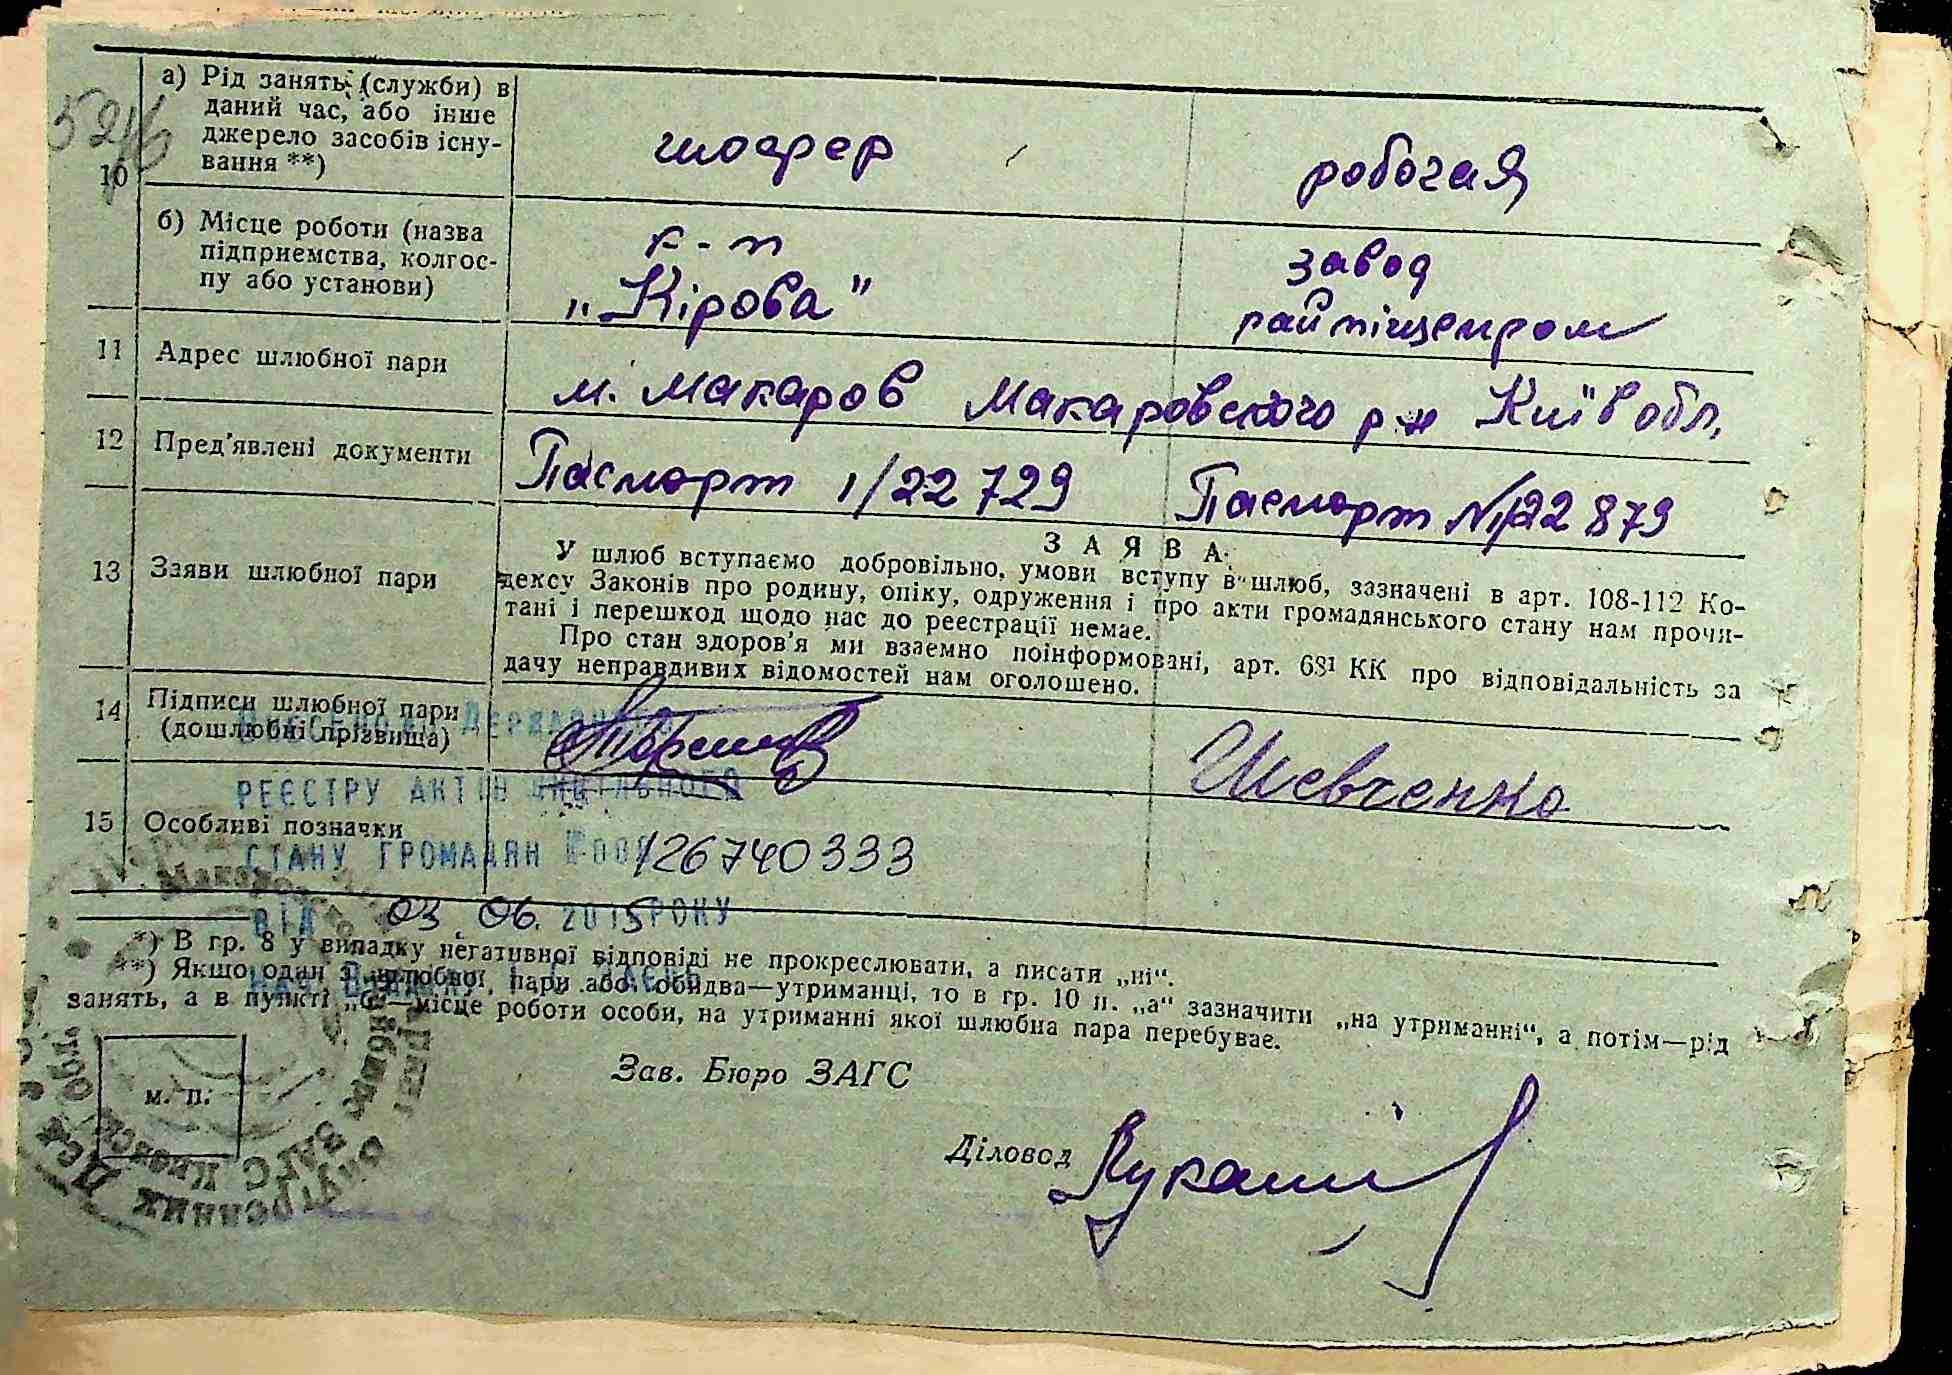 10
а) Рід занять (служби) в
даний час, або інше
джерело засобів існу-
вання **)
шофер
робочая
б) Місце роботи (назва
підприємства, колгос-
пу або установи)
к-п
„Кірова"
завод
райпіщепром
11 Адрес шлюбної пари
м. Макаров Макаровского р-н Київ обл.
12 Пред'явлені документи
Паспорт 1/22 729
Паспорт № 1/22 879
13 Заяви шлюбної пари
З А Я В А
У шлюб вступаємо добровільно, умови вступу в шлюб, зазначені в арт. 108-112 Ко-
дексу Законів про родину, опіку, одруження і про акти громадянського стану нам прочи-
тані і перешкод щодо нас до реєстрації немає.
Про стан здоров'я ми взаємно поінформовані, арт. 68¹ КК про відповідальність за
дачу неправдивих відомостей нам оголошено.
14 Підписи шлюбної пари
(дошлюбні прізвища)
Шевченко
15 Особливі позначки
ДЕРЖАВНОГО
РЕЄСТРУ АКТІВ ЦИВІЛЬНОГО
СТАНУ ГРОМАДЯН №00126740333
ВІД 03. 06. 2015 РОКУ
*) В гр. 8 у випадку негативної відповіді не прокреслювати, а писати „ні“.
**) Якщо один з шлюбної пари або обидва—утриманці, то в гр. 10 п. „а“ зазначити „на утриманні“, а потім—рід
занять, а в пункті „б“—місце роботи особи, на утриманні якої шлюбна пара перебуває.
Зав. Бюро ЗАГС
м. п.
Діловод